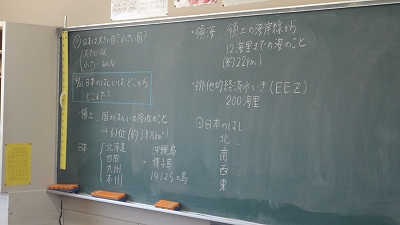 ① 日本は大きい国?小さい国?
大きい
小さい みんな
日本のはんいは、どこから
どこまで?
・領土 国のはんいの陸地のこと
→61位(約38万km²)
日本
北海道
四国
九州
本州
沖縄島
択捉島
14125の島
・領海 領土の海岸線から
12海里までの海のこと
(約22km)
・排他的経済水いき(EEZ)
200海里
日本のはし
北
南
西
東